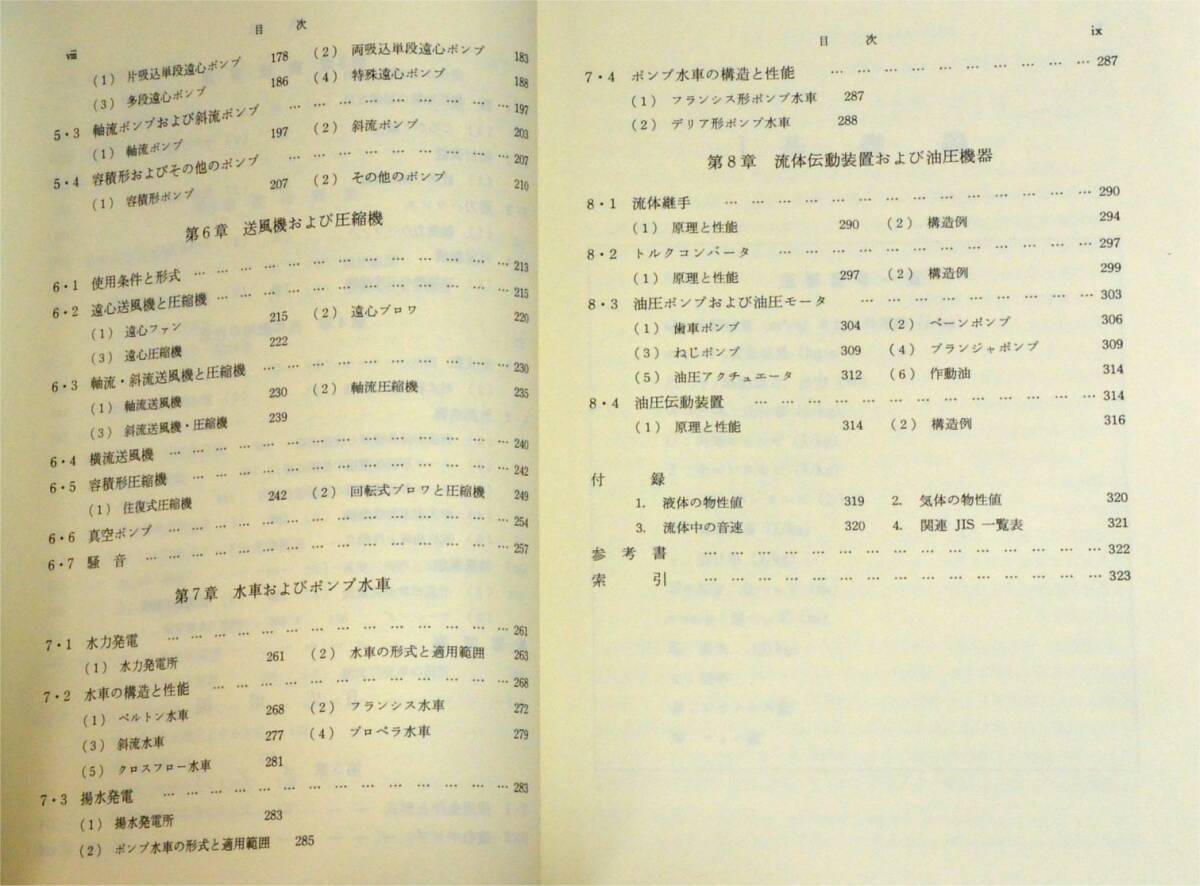 目 次
viii
(1) 片吸込単段遠心ポンプ 178 (2) 両吸込単段遠心ポンプ 183
(3) 多段遠心ポンプ 186 (4) 特殊遠心ポンプ 188
5・3 軸流ポンプおよび斜流ポンプ … … … … … … … … … … 197
(1) 軸流ポンプ 197 (2) 斜流ポンプ 203
5・4 容積形およびその他のポンプ … … … … … … … … … … 207
(1) 容積形ポンプ 207 (2) その他のポンプ 210
第6章 送風機および圧縮機
6・1 使用条件と形式 … … … … … … … … … … … … … 213
6・2 遠心送風機と圧縮機 … … … … … … … … … … … … 215
(1) 遠心ファン 215 (2) 遠心ブロワ 220
(3) 遠心圧縮機 222
6・3 軸流・斜流送風機と圧縮機 … … … … … … … … … … 230
(1) 軸流送風機 230 (2) 軸流圧縮機 235
(3) 斜流送風機・圧縮機 239
6・4 横流送風機 … … … … … … … … … … … … … … 240
6・5 容積形圧縮機 … … … … … … … … … … … … … 242
(1) 往復式圧縮機 242 (2) 回転式ブロワと圧縮機 249
6・6 真空ポンプ … … … … … … … … … … … … … … 254
6・7 騒 音 … … … … … … … … … … … … … … … 257
第7章 水車およびポンプ水車
7・1 水力発電 … … … … … … … … … … … … … … 261
(1) 水力発電所 261 (2) 水車の形式と適用範囲 263
7・2 水車の構造と性能 … … … … … … … … … … … … 268
(1) ペルトン水車 268 (2) フランシス水車 272
(3) 斜流水車 277 (4) プロペラ水車 279
(5) クロスフロー水車 281
7・3 揚水発電 … … … … … … … … … … … … … … 283
(1) 揚水発電所 283
(2) ポンプ水車の形式と適用範囲 285
目 次
ix
7・4 ポンプ水車の構造と性能 … … … … … … … … … … 287
(1) フランシス形ポンプ水車 287
(2) デリア形ポンプ水車 288
第8章 流体伝動装置および油圧機器
8・1 流体継手 … … … … … … … … … … … … … … 290
(1) 原理と性能 290 (2) 構造例 294
8・2 トルクコンバータ … … … … … … … … … … … … 297
(1) 原理と性能 297 (2) 構造例 299
8・3 油圧ポンプおよび油圧モータ … … … … … … … … … 303
(1) 歯車ポンプ 304 (2) ベーンポンプ 306
(3) ねじポンプ 309 (4) プランジャポンプ 309
(5) 油圧アクチュエータ 312 (6) 作動油 314
8・4 油圧伝動装置 … … … … … … … … … … … … … 314
(1) 原理と性能 314 (2) 構造例 316
付 録
1. 液体の物性値 319 2. 気体の物性値 320
3. 流体中の音速 320 4. 関連 JIS 一覧表 321
参 考 書 … … … … … … … … … … … … … … … 322
索 引 … … … … … … … … … … … … … … … 323